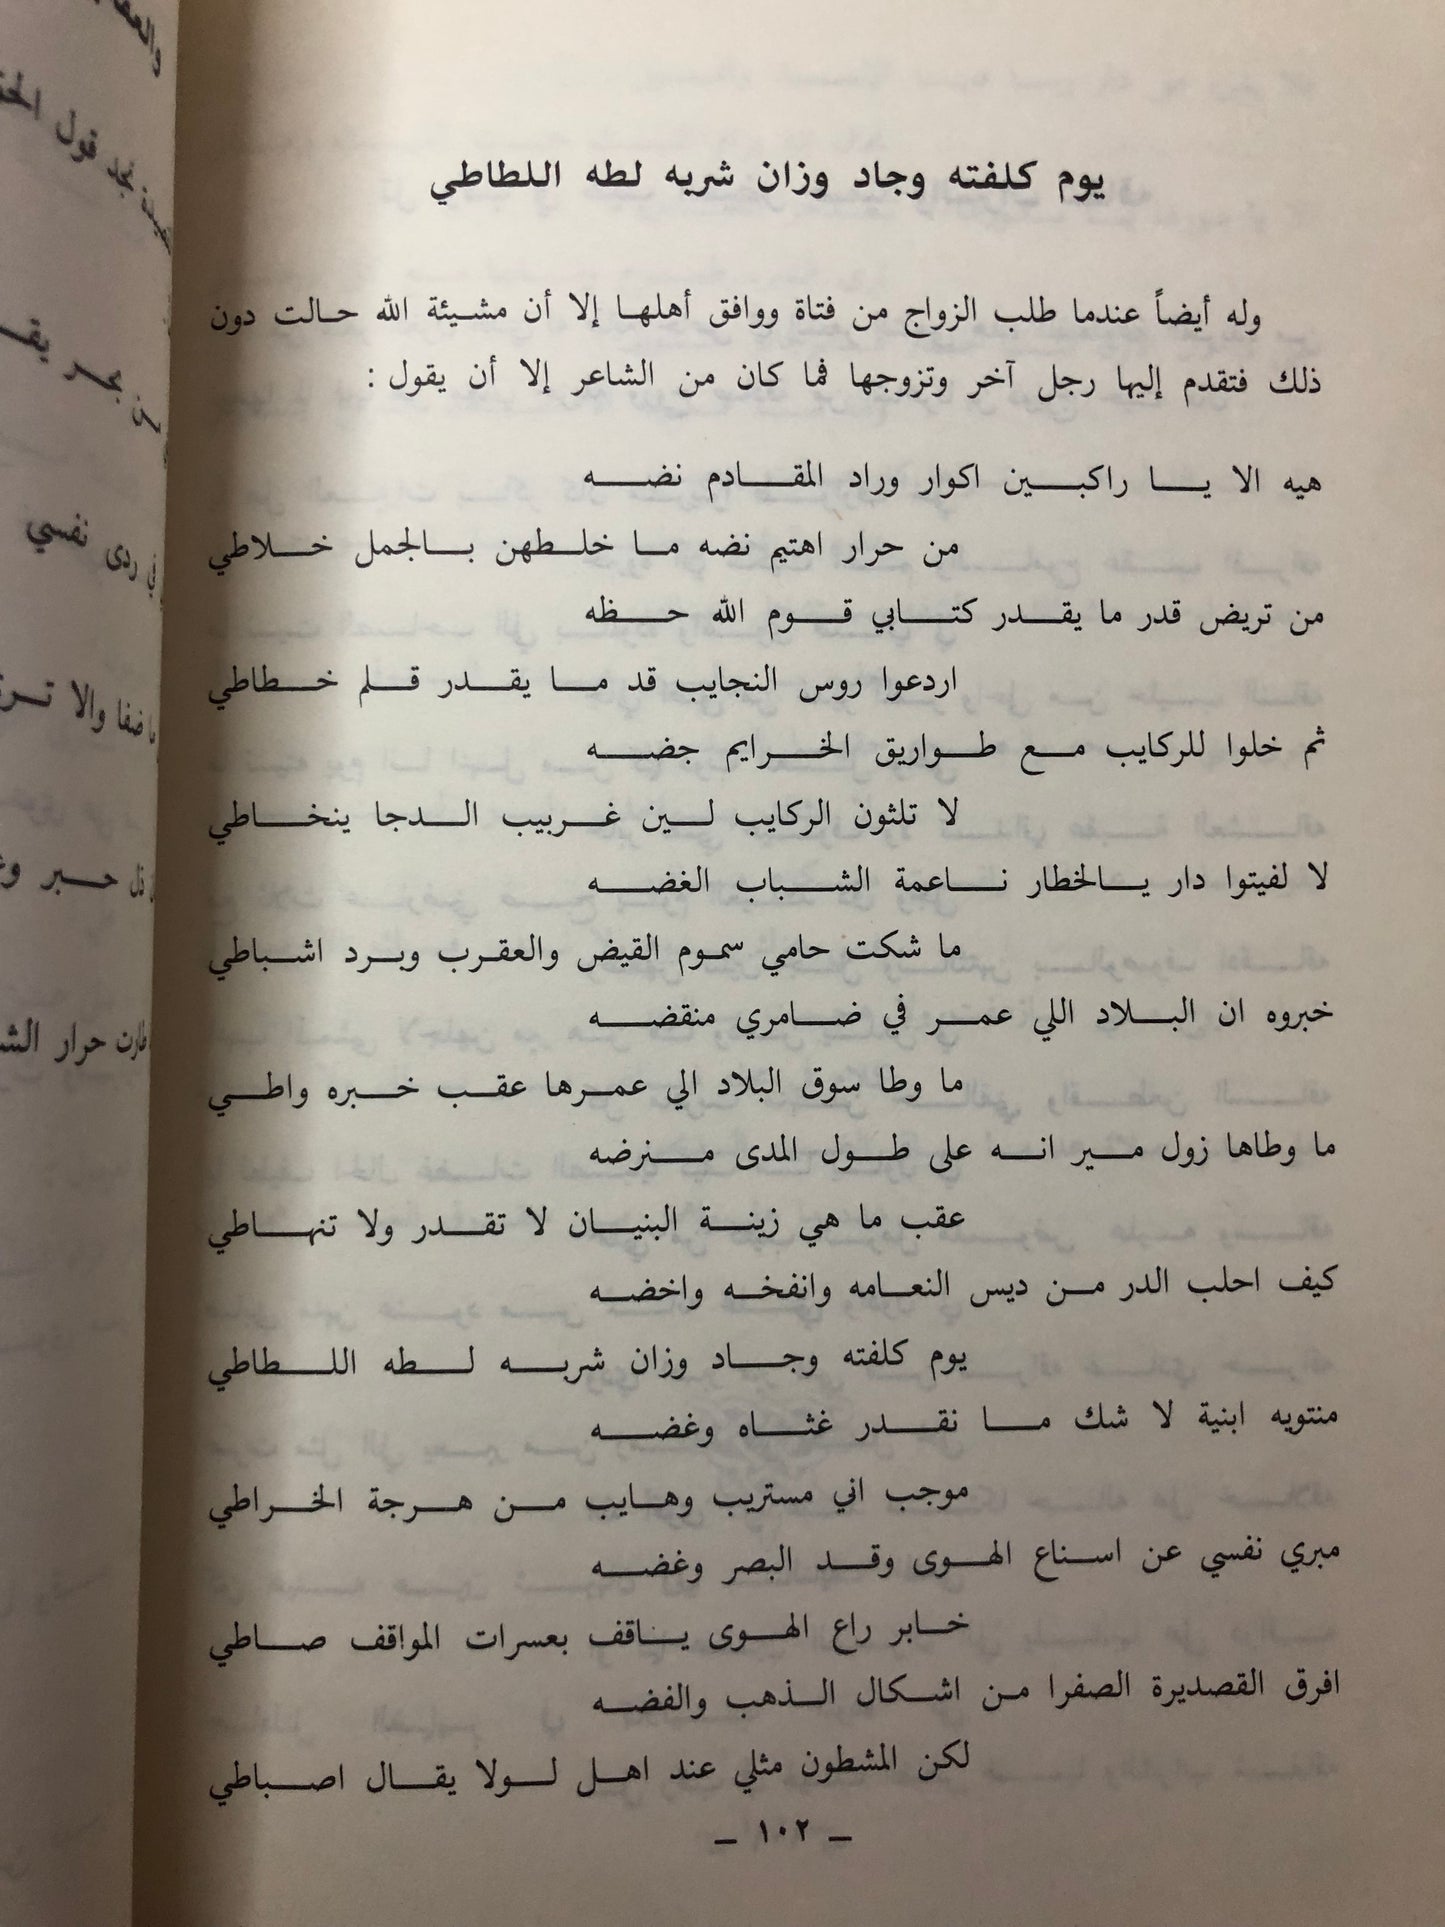 يوم كلفته وجاد وزان شربه لطه اللطاطي
وله أيضاً عندما طلب الزواج من فتاة ووافق أهلها إلا أن مشيئة الله حالت دون
ذلك فتقدم إليها رجل آخر وتزوجها فما كان من الشاعر إلا أن يقول :
هيه الا يا راكبين اكوار وراد المقادم نضه
من حرار اهتيم نضه ما خلطهن بالجمل خلاطي
من تريض قدر ما يقدر كتابي قوم الله حظه
اردعوا روس النجايب قد ما يقدر قلم خطاطي
ثم خلوا للركايب مع طواريق الخرايم جضه
لا تلثون الركايب لين غربيب الدجا ينخاطي
لا لفيتوا دار يالخطار ناعمة الشباب الغضه
ما شكت حامي سموم القيض والعقرب وبرد اشباطي
خبروه ان البلاد اللي عمر في ضامري منقضه
ما وطا سوق البلاد الي عمرها عقب خبره واطي
ما وطاها زول مير انه على طول المدى منرضه
عقب ما هي زينة البنيان لا تقدر ولا تنهاطي
كيف احلب الدر من ديس النعامه وانفخه واخضه
يوم كلفته وجاد وزان شربه لطه اللطاطي
منتويه ابنية لا شك ما نقدر غثاه وغضه
موجب اني مستريب وهايب من هرجة الخراطي
مبري نفسي عن اسناع الهوى وقد البصر وغضه
خابر راع الهوى ياقف بعسرات المواقف صاطي
افرق القصديرة الصفرا من اشكال الذهب والفضه
لكن المشطون مثلي عند اهل لولا يقال اصباطي
– ١٠٢ –